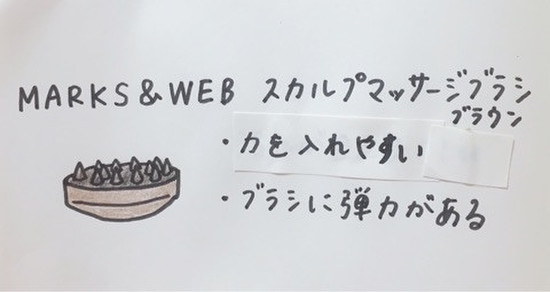 MARKS&WEB スカルプマッサージブラシ
ブラウン
・力を入れやすい
・ブラシに弾力がある